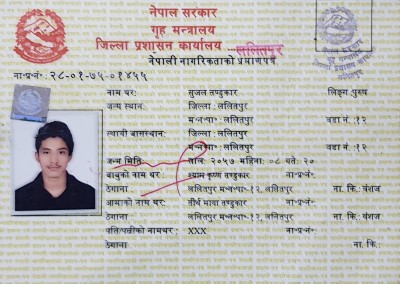 नेपाल सरकार
गृह मन्त्रालय
जिल्ला प्रशासन कार्यालय ललितपुर
नेपाली नागरिकताको प्रमाणपत्र
ना॰प्र॰नं॰ २८-०१-७५-०१४५५
नाम थर: सुजल तण्डुकार लिङ्ग: पुरुष
जन्म स्थान जिल्ला: ललितपुर
म॰न॰पा॰: ललितपुर वडा नं.:१२
स्थायी बासस्थान: जिल्ला: ललितपुर
म॰न॰पा॰: ललितपुर वडा नं.:१२
जन्म मिति साल: २०५७ महिना: ०८ गते: २०
बाबुको नाम थर: श्याम कृष्ण तण्डुकार ना॰प्र॰नं॰
ठेगाना ललितपुर म॰न॰पा॰-१२, ललितपुर ना. कि.: वंशज
आमाको नाम थर: तीर्थ माया तण्डुकार ना॰प्र॰नं॰
ठेगाना ललितपुर म॰न॰पा॰-१२, ललितपुर ना. कि.: वंशज
पति/पत्नीको नामथर: XXX ना॰प्र॰नं॰
ठेगाना ना. कि.: